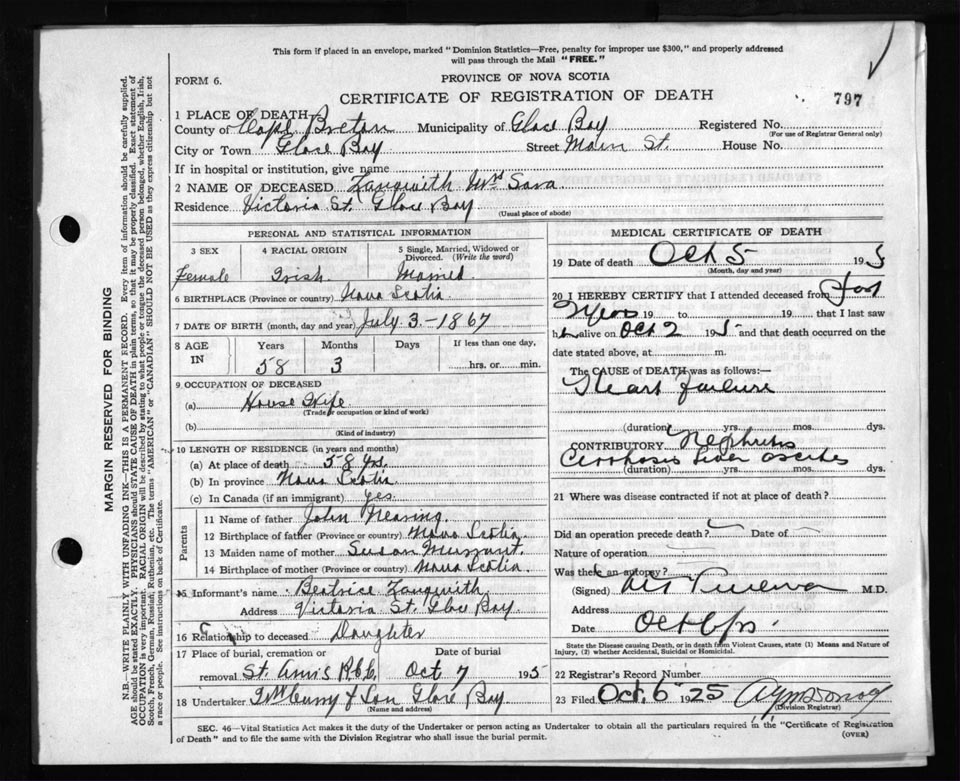 This form if placed in an envelope, marked "Dominion Statistics—Free, penalty for improper use $300," and properly addressed
will pass through the Mail "FREE."
FORM 6.
PROVINCE OF NOVA SCOTIA
CERTIFICATE OF REGISTRATION OF DEATH
797
1 PLACE OF DEATH
County of Cape Breton Municipality of Glace Bay Registered No.
(For use of Registrar General only)
City or Town Glace Bay Street Main St. House No.
If in hospital or institution, give name
2 NAME OF DECEASED Zangwith Mrs Sara
Residence Victoria St. Glace Bay
(Usual place of abode)
PERSONAL AND STATISTICAL INFORMATION
3 SEX 4 RACIAL ORIGIN 5 Single, Married, Widowed or Divorced. (Write the word)
Female Irish Married
6 BIRTHPLACE (Province or country) Nova Scotia
7 DATE OF BIRTH (month, day and year) July 3-1867
8 AGE IN Years Months Days If less than one day,
58 3 hrs. or min.
9 OCCUPATION OF DECEASED
(a) House Wife
(Trade or occupation or kind of work)
(b)
(Kind of industry)
10 LENGTH OF RESIDENCE (in years and months)
(a) At place of death 58 yrs.
(b) In province Nova Scotia
(c) In Canada (if an immigrant) yes.
Parents
11 Name of father John Nearing.
12 Birthplace of father (Province or country) Nova Scotia
13 Maiden name of mother Susan
14 Birthplace of mother (Province or country) Nova Scotia
15 Informant's name Beatrice Zangwith
Address Victoria St. Glace Bay
16 Relationship to deceased Daughter
17 Place of burial, cremation or Date of burial
removal St. Anns Oct 7 195
18 Undertaker & Son Glace Bay
(Name and address)
MEDICAL CERTIFICATE OF DEATH
19 Date of death Oct 5 195
(Month, day and year)
20 I HEREBY CERTIFY that I attended deceased from
19 to 19 that I last saw
h alive on Oct 2 195- and that death occurred on the
date stated above, at m.
The CAUSE OF DEATH was as follows:—
Heart failure
(duration) yrs. mos. dys.
CONTRIBUTORY Nephritis
Cirrhosis Liver ascites
(duration) yrs. mos. dys.
21 Where was disease contracted if not at place of death?
Did an operation precede death? Date of
Nature of operation
Was there an autopsy?
(Signed) M.D.
Address
Date Oct 6
State the Disease causing Death, or in death from Violent Causes, state (1) Means and Nature of Injury, (2) whether Accidental, Suicidal or Homicidal.
22 Registrar's Record Number
23 Filed Oct. 6 1925
(Division Registrar)
SEC. 46—Vital Statistics Act makes it the duty of the Undertaker or person acting as Undertaker to obtain all the particulars required in the "Certificate of Registration
of Death" and to file the same with the Division Registrar who shall issue the burial permit. (OVER)
MARGIN RESERVED FOR BINDING
N.B.—WRITE PLAINLY WITH UNFADING INK—THIS IS A PERMANENT RECORD. Every item of information should be carefully supplied.
AGE should be stated EXACTLY. PHYSICIANS should STATE CAUSE OF DEATH in plain terms, so that it may be properly classified. Exact statement of
OCCUPATION is very important. RACIAL ORIGIN will be described by stating to what people or tongue the deceased person belonged, whether English, Irish,
Scotch, French, German, Russian, Ruthenian, etc. The terms "AMERICAN" or "CANADIAN" SHOULD NOT BE USED as they express citizenship but not
a race or people. See instructions on back of Certificate.